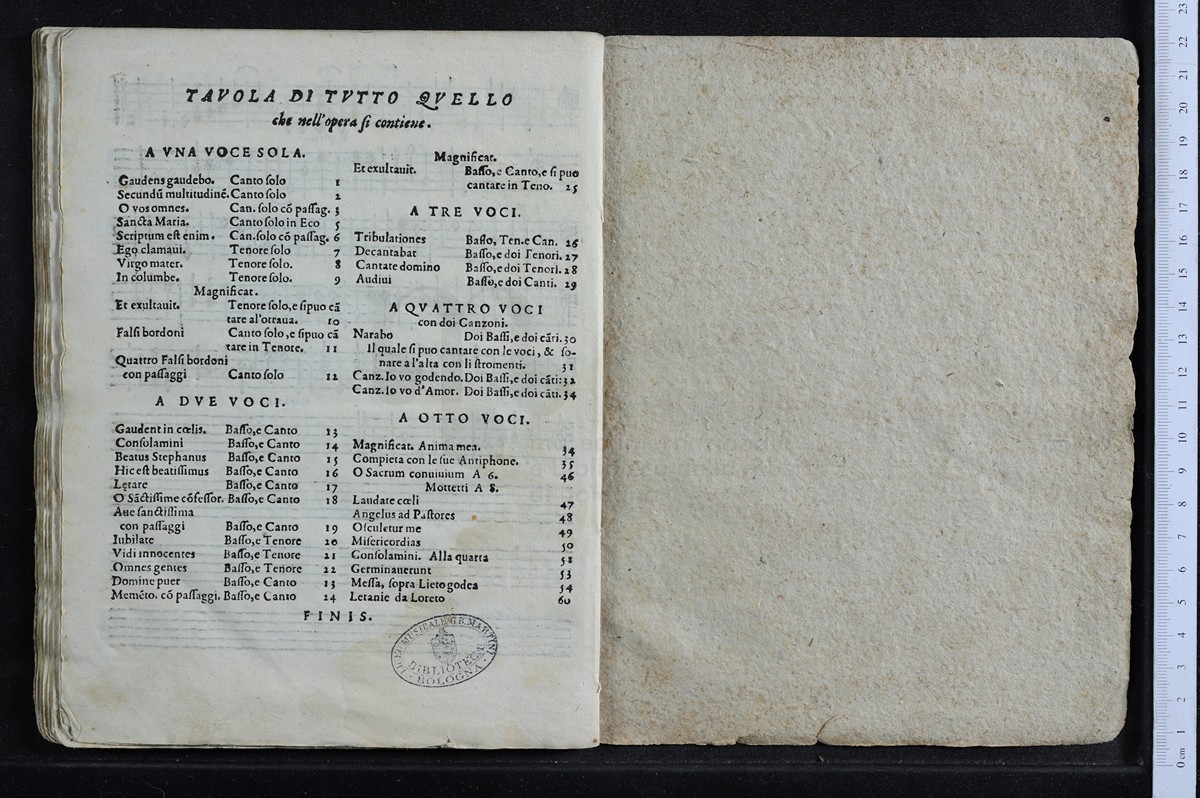 TAVOLA DI TVTTO QVELLO
che nell'opera ſi contiene.
A VNA VOCE SOLA.
Gaudens gaudebo. Canto ſolo 1
Secundū multitudinē. Canto ſolo 2
O vos omnes. Can. ſolo cō paſſag. 3
Sancta Maria. Canto ſolo in Eco 5
Scriptum eſt enim. Can. ſolo cō paſſag. 6
Ego clamaui. Tenore ſolo 7
Virgo mater. Tenore ſolo. 8
In columbe. Tenore ſolo. 9
Magnificat.
Et exultauit. Tenore ſolo, e ſi puo cā
tare al'ottaua. 10
Falſi bordoni Canto ſolo, e ſi puo cā
tare in Tenore. 11
Quattro Falſi bordoni
con paſſaggi Canto ſolo 12
A DVE VOCI.
Gaudent in cœlis. Baſſo, e Canto 13
Conſolamini Baſſo, e Canto 14
Beatus Stephanus Baſſo, e Canto 15
Hic eſt beatiſſimus Baſſo, e Canto 16
Letare Baſſo, e Canto 17
O Sāctiſſime cōfeſſor. Baſſo, e Canto 18
Aue ſanctiſſima
con paſſaggi Baſſo, e Canto 19
Iubilate Baſſo, e Tenore 20
Vidi innocentes Baſſo, e Tenore 21
Omnes gentes Baſſo, e Tenore 22
Domine puer Baſſo, e Canto 13
Memēto. cō paſſaggi. Baſſo, e Canto 24
Magnificat.
Et exultauit. Baſſo, e Canto, e ſi puo
cantare in Teno. 25
A TRE VOCI.
Tribulationes Baſſo, Ten. e Can. 26
Decantabat Baſſo, e doi Tenori. 27
Cantate domino Baſſo, e doi Tenori. 28
Audiui Baſſo, e doi Canti. 29
A QVATTRO VOCI
con doi Canzoni.
Narabo Doi Baſſi, e doi cāti. 30
Il quale ſi puo cantare con le voci, & ſo-
nare a l'alta con li ſtromenti. 31
Canz. Io vo godendo. Doi Baſſi, e doi cāti: 32
Canz. Io vo d'Amor. Doi Baſſi, e doi cāti. 34
A OTTO VOCI.
Magnificat. Anima mea. 34
Compieta con le ſue Antiphone. 35
O Sacrum conuiuium A 6. 46
Mottetti A 8.
Laudate cœli 47
Angelus ad Paſtores 48
Oſculetur me 49
Miſericordias 50
Conſolamini. Alla quarta 51
Germinauerunt 53
Meſſa, ſopra Lieto godea 54
Letanie da Loreto 60
FINIS.
LICEO MUSICALE G.B. MARTINI
BIBLIOTECA
BOLOGNA
0 cm 1 2 3 4 5 6 7 8 9 10 11 12 13 14 15 16 17 18 19 20 21 22 23